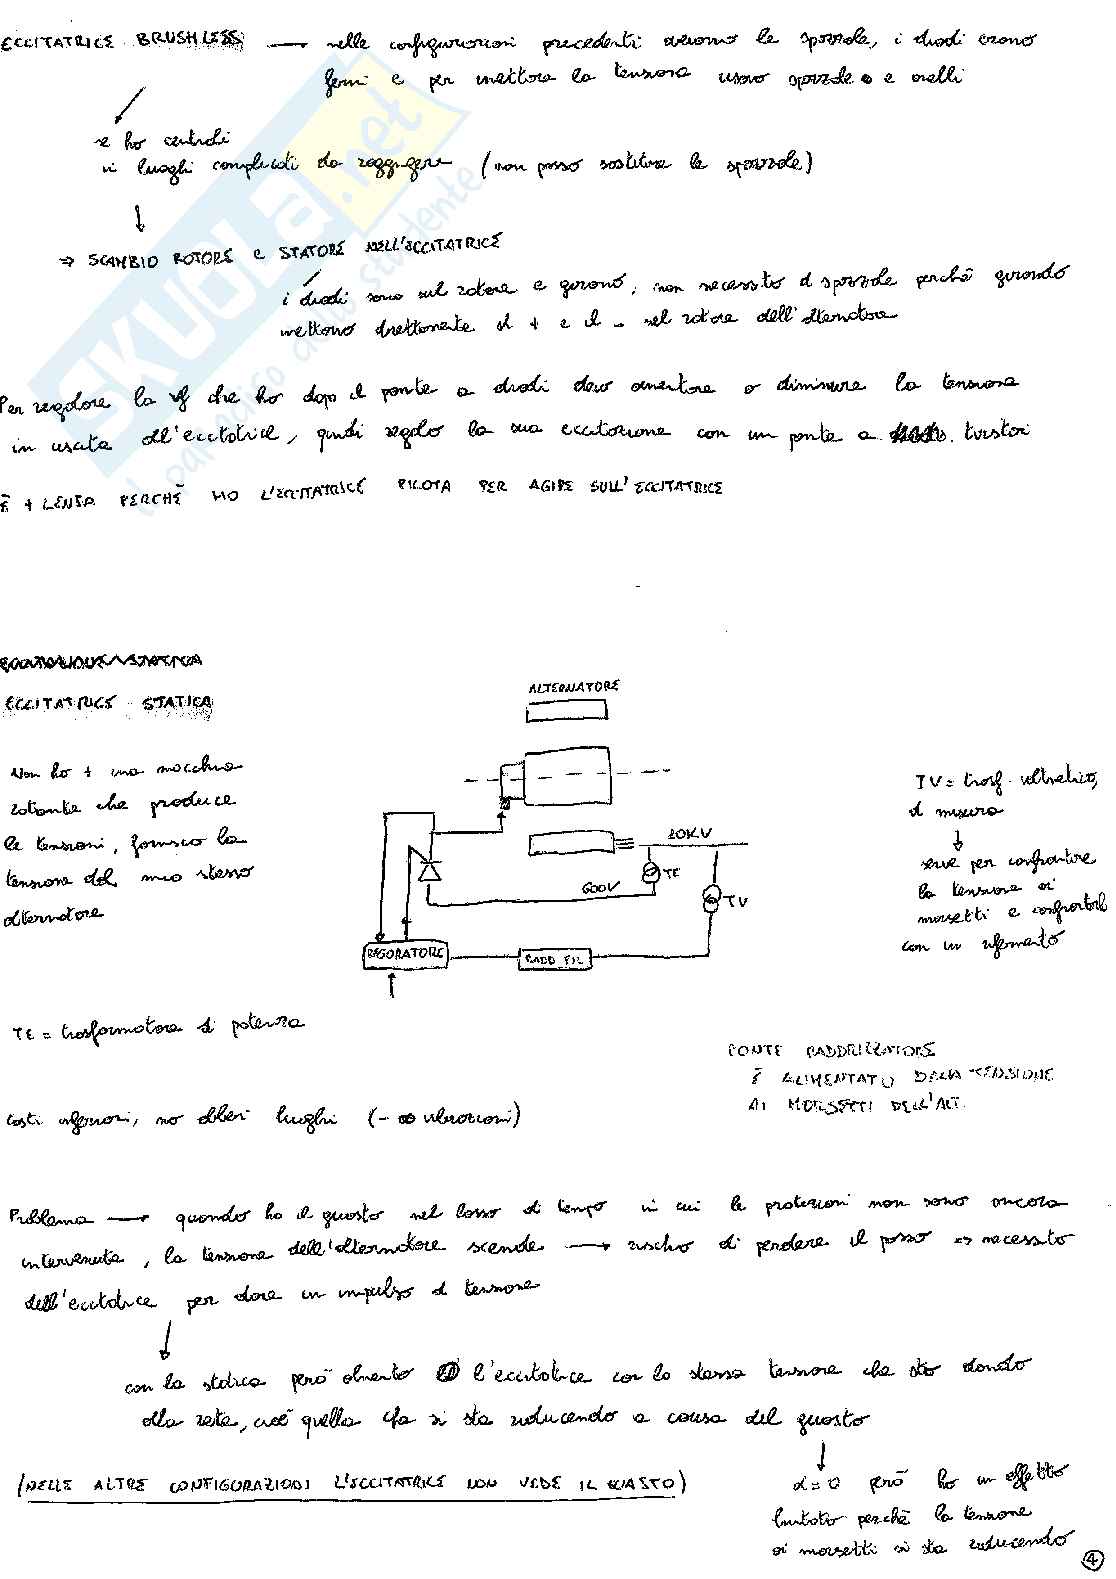 ECCITATRICE BRUSHLESS → nelle configurazioni precedenti avevamo le spazzole, i diodi erano
fermi e per mettere la tensione usavo spazzole e anelli
se ho centrali
in luoghi complicati da raggiungere (non posso sostituire le spazzole)
⇒ SCAMBIO ROTORE e STATORE NELL'ECCITATRICE
i diodi sono sul rotore e girano, non necessito di spazzole perchè girando
mettono direttamente il + e il - sul rotore dell'alternatore
Per regolare la vf che ho dopo il ponte a diodi devo aumentare o diminuire la tensione
in uscita all'eccitatrice, quindi regolo la sua eccitazione con un ponte a tiristori
È + LENTA PERCHÈ HO L'ECCITATRICE PILOTA PER AGIRE SULL'ECCITATRICE
ECCITATRICE STATICA
Non ho + una macchina
rotante che produce
le tensioni, fornisco la
tensione dal mio stesso
alternatore
ALTERNATORE
20KV
TE
600V
TV
REGOLATORE
RADD FIL
TV = trasf. voltmetrico,
di misura
serve per confrontare
la tensione ai
morsetti e confrontarla
con un riferimento
TE = trasformatore di potenza
PONTE RADDRIZZATORE
È ALIMENTATO DALLA TENSIONE
AI MORSETTI DELL'ALT.
costi inferiori, no alberi lunghi (- vibrazioni)
Problema → quando ho il guasto nel lasso di tempo in cui le protezioni non sono ancora
intervenute, la tensione dell'alternatore scende → rischio di perdere il passo ⇒ necessito
dell'eccitatrice per dare un impulso di tensione
con la statica però alimento l'eccitatrice con la stessa tensione che sto dando
alla rete, cioè quella che si sta riducendo a causa del guasto
(NELLE ALTRE CONFIGURAZIONI L'ECCITATRICE NON VEDE IL GUASTO)
α=0 però ho un effetto
limitato perchè la tensione
ai morsetti si sta riducendo
4
SKUOLA.net